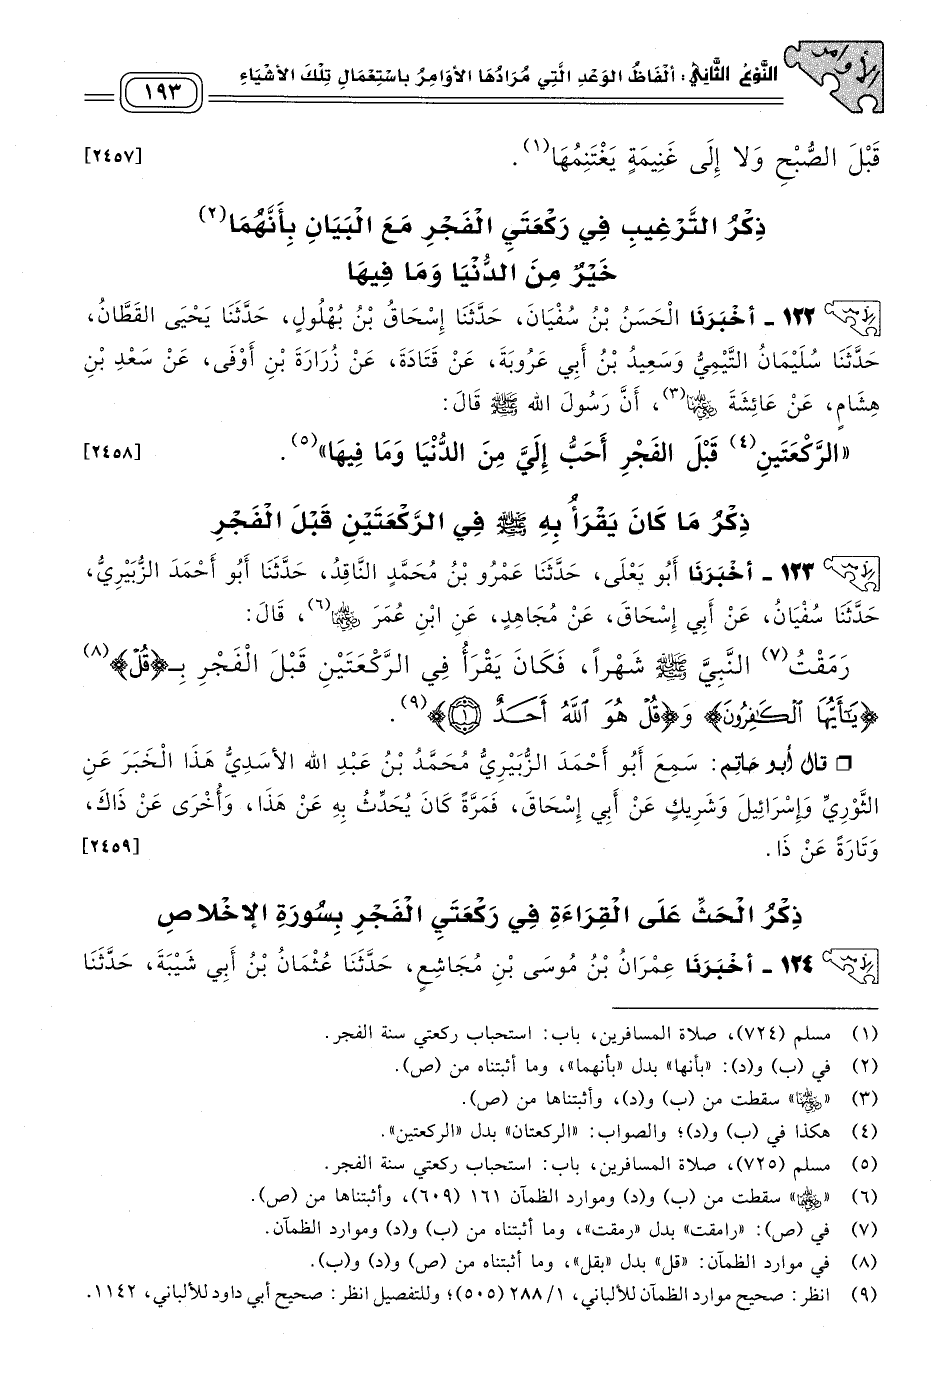 الأوامر
النَّوْعُ الثَّانِي: أَلْفَاظُ الوَعْدِ الَّتِي مُرَادُهَا الأَوَامِرُ بِاسْتِعْمَالِ تِلْكَ الأَشْيَاءِ
١٩٣
قَبْلَ الصُّبْحِ وَلا إِلَى غَنِيمَةٍ يَغْتَنِمُهَا(١). [٢٤٥٧]
ذِكْرُ التَّرْغِيبِ فِي رَكْعَتَيِ الْفَجْرِ مَعَ الْبَيَانِ بِأَنَّهُمَا(٢)
خَيْرٌ مِنَ الدُّنْيَا وَمَا فِيهَا
١٢٢ - أَخْبَرَنَا الْحَسَنُ بْنُ سُفْيَانَ، حَدَّثَنَا إِسْحَاقُ بْنُ بُهْلُولٍ، حَدَّثَنَا يَحْيَى القَطَّانُ،
حَدَّثَنَا سُلَيْمَانُ التَّيْمِيُّ وَسَعِيدُ بْنُ أَبِي عَرُوبَةَ، عَنْ قَتَادَةَ، عَنْ زُرَارَةَ بْنِ أَوْفَى، عَنْ سَعْدِ بْنِ
هِشَامٍ، عَنْ عَائِشَةَ ﵂(٣)، أَنَّ رَسُولَ الله ﷺ قَالَ:
«الرَّكْعَتَينِ(٤) قَبْلَ الفَجْرِ أَحَبُّ إِلَيَّ مِنَ الدُّنْيَا وَمَا فِيهَا»(٥). [٢٤٥٨]
ذِكْرُ مَا كَانَ يَقْرَأُ بِهِ ﷺ فِي الرَّكْعَتَيْنِ قَبْلَ الْفَجْرِ
١٢٣ - أَخْبَرَنَا أَبُو يَعْلَى، حَدَّثَنَا عَمْرُو بْنُ مُحَمَّدٍ النَّاقِدُ، حَدَّثَنَا أَبُو أَحْمَدَ الزُّبَيْرِيُّ،
حَدَّثَنَا سُفْيَانُ، عَنْ أَبِي إِسْحَاقَ، عَنْ مُجَاهِدٍ، عَنِ ابْنِ عُمَرَ ﵄(٦)، قَالَ:
رَمَقْتُ(٧) النَّبِيَّ ﷺ شَهْراً، فَكَانَ يَقْرَأُ فِي الرَّكْعَتَيْنِ قَبْلَ الْفَجْرِ بِـ﴿قُلْ﴾(٨)
﴿يَٰٓأَيُّهَا ٱلْكَٰفِرُونَ﴾ وَ﴿قُلْ هُوَ ٱللَّهُ أَحَدٌ ١﴾(٩).
□ قال أبو حاتم: سَمِعَ أَبُو أَحْمَدَ الزُّبَيْرِيُّ مُحَمَّدُ بْنُ عَبْدِ الله الأَسَدِيُّ هَذَا الْخَبَرَ عَنِ
الثَّوْرِيِّ وَإِسْرَائِيلَ وَشَرِيكٍ عَنْ أَبِي إِسْحَاقَ، فَمَرَّةً كَانَ يُحَدِّثُ بِهِ عَنْ هَذَا، وَأُخْرَى عَنْ ذَاكَ،
وَتَارَةً عَنْ ذَا. [٢٤٥٩]
ذِكْرُ الْحَثِّ عَلَى الْقِرَاءَةِ فِي رَكْعَتَيِ الْفَجْرِ بِسُورَةِ الإِخْلاصِ
١٢٤ - أَخْبَرَنَا عِمْرَانُ بْنُ مُوسَى بْنِ مُجَاشِعٍ، حَدَّثَنَا عُثْمَانُ بْنُ أَبِي شَيْبَةَ، حَدَّثَنَا
(١) مسلم (٧٢٤)، صلاة المسافرين، باب: استحباب ركعتي سنة الفجر.
(٢) في (ب) و(د): «بأنها» بدل «بأنهما»، وما أثبتناه من (ص).
(٣) «﵂» سقطت من (ب) و(د)، وأثبتناها من (ص).
(٤) هكذا في (ب) و(د)؛ والصواب: «الركعتان» بدل «الركعتين».
(٥) مسلم (٧٢٥)، صلاة المسافرين، باب: استحباب ركعتي سنة الفجر.
(٦) «﵄» سقطت من (ب) و(د) وموارد الظمآن ١٦١ (٦٠٩)، وأثبتناها من (ص).
(٧) في (ص): «رامقت» بدل «رمقت»، وما أثبتناه من (ب) و(د) وموارد الظمآن.
(٨) في موارد الظمآن: «قل» بدل «بقل»، وما أثبتناه من (ص) و(د) و(ب).
(٩) انظر: صحيح موارد الظمآن للألباني، ١/ ٢٨٨ (٥٠٥)؛ وللتفصيل انظر: صحيح أبي داود للألباني، ١١٤٢.